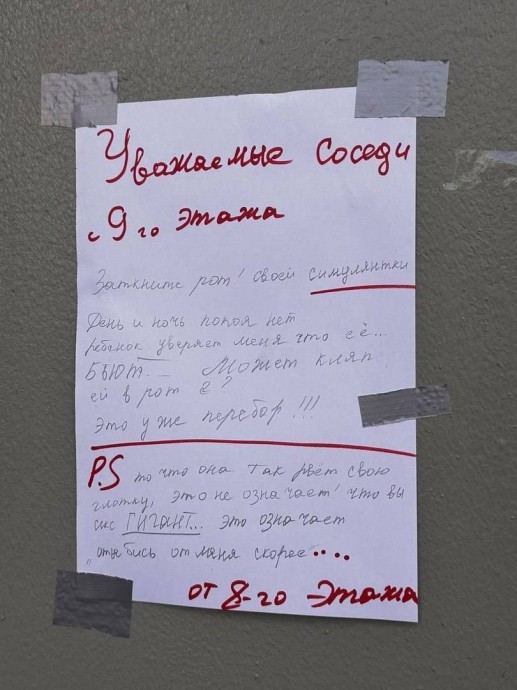 Уважаемые соседи
с 9го этажа
Заткните рот! своей симулянтки
День и ночь покоя нет
ребёнок уверяет меня что её...
БЬЮТ... Может кляп
ей в рот а?
Это уже перебор!!!
P.S то что она так рвёт свою
глотку, это не означает! что вы
секс ГИГАНТ... это означает
"отъебись от меня скорее....
от 8-го этажа